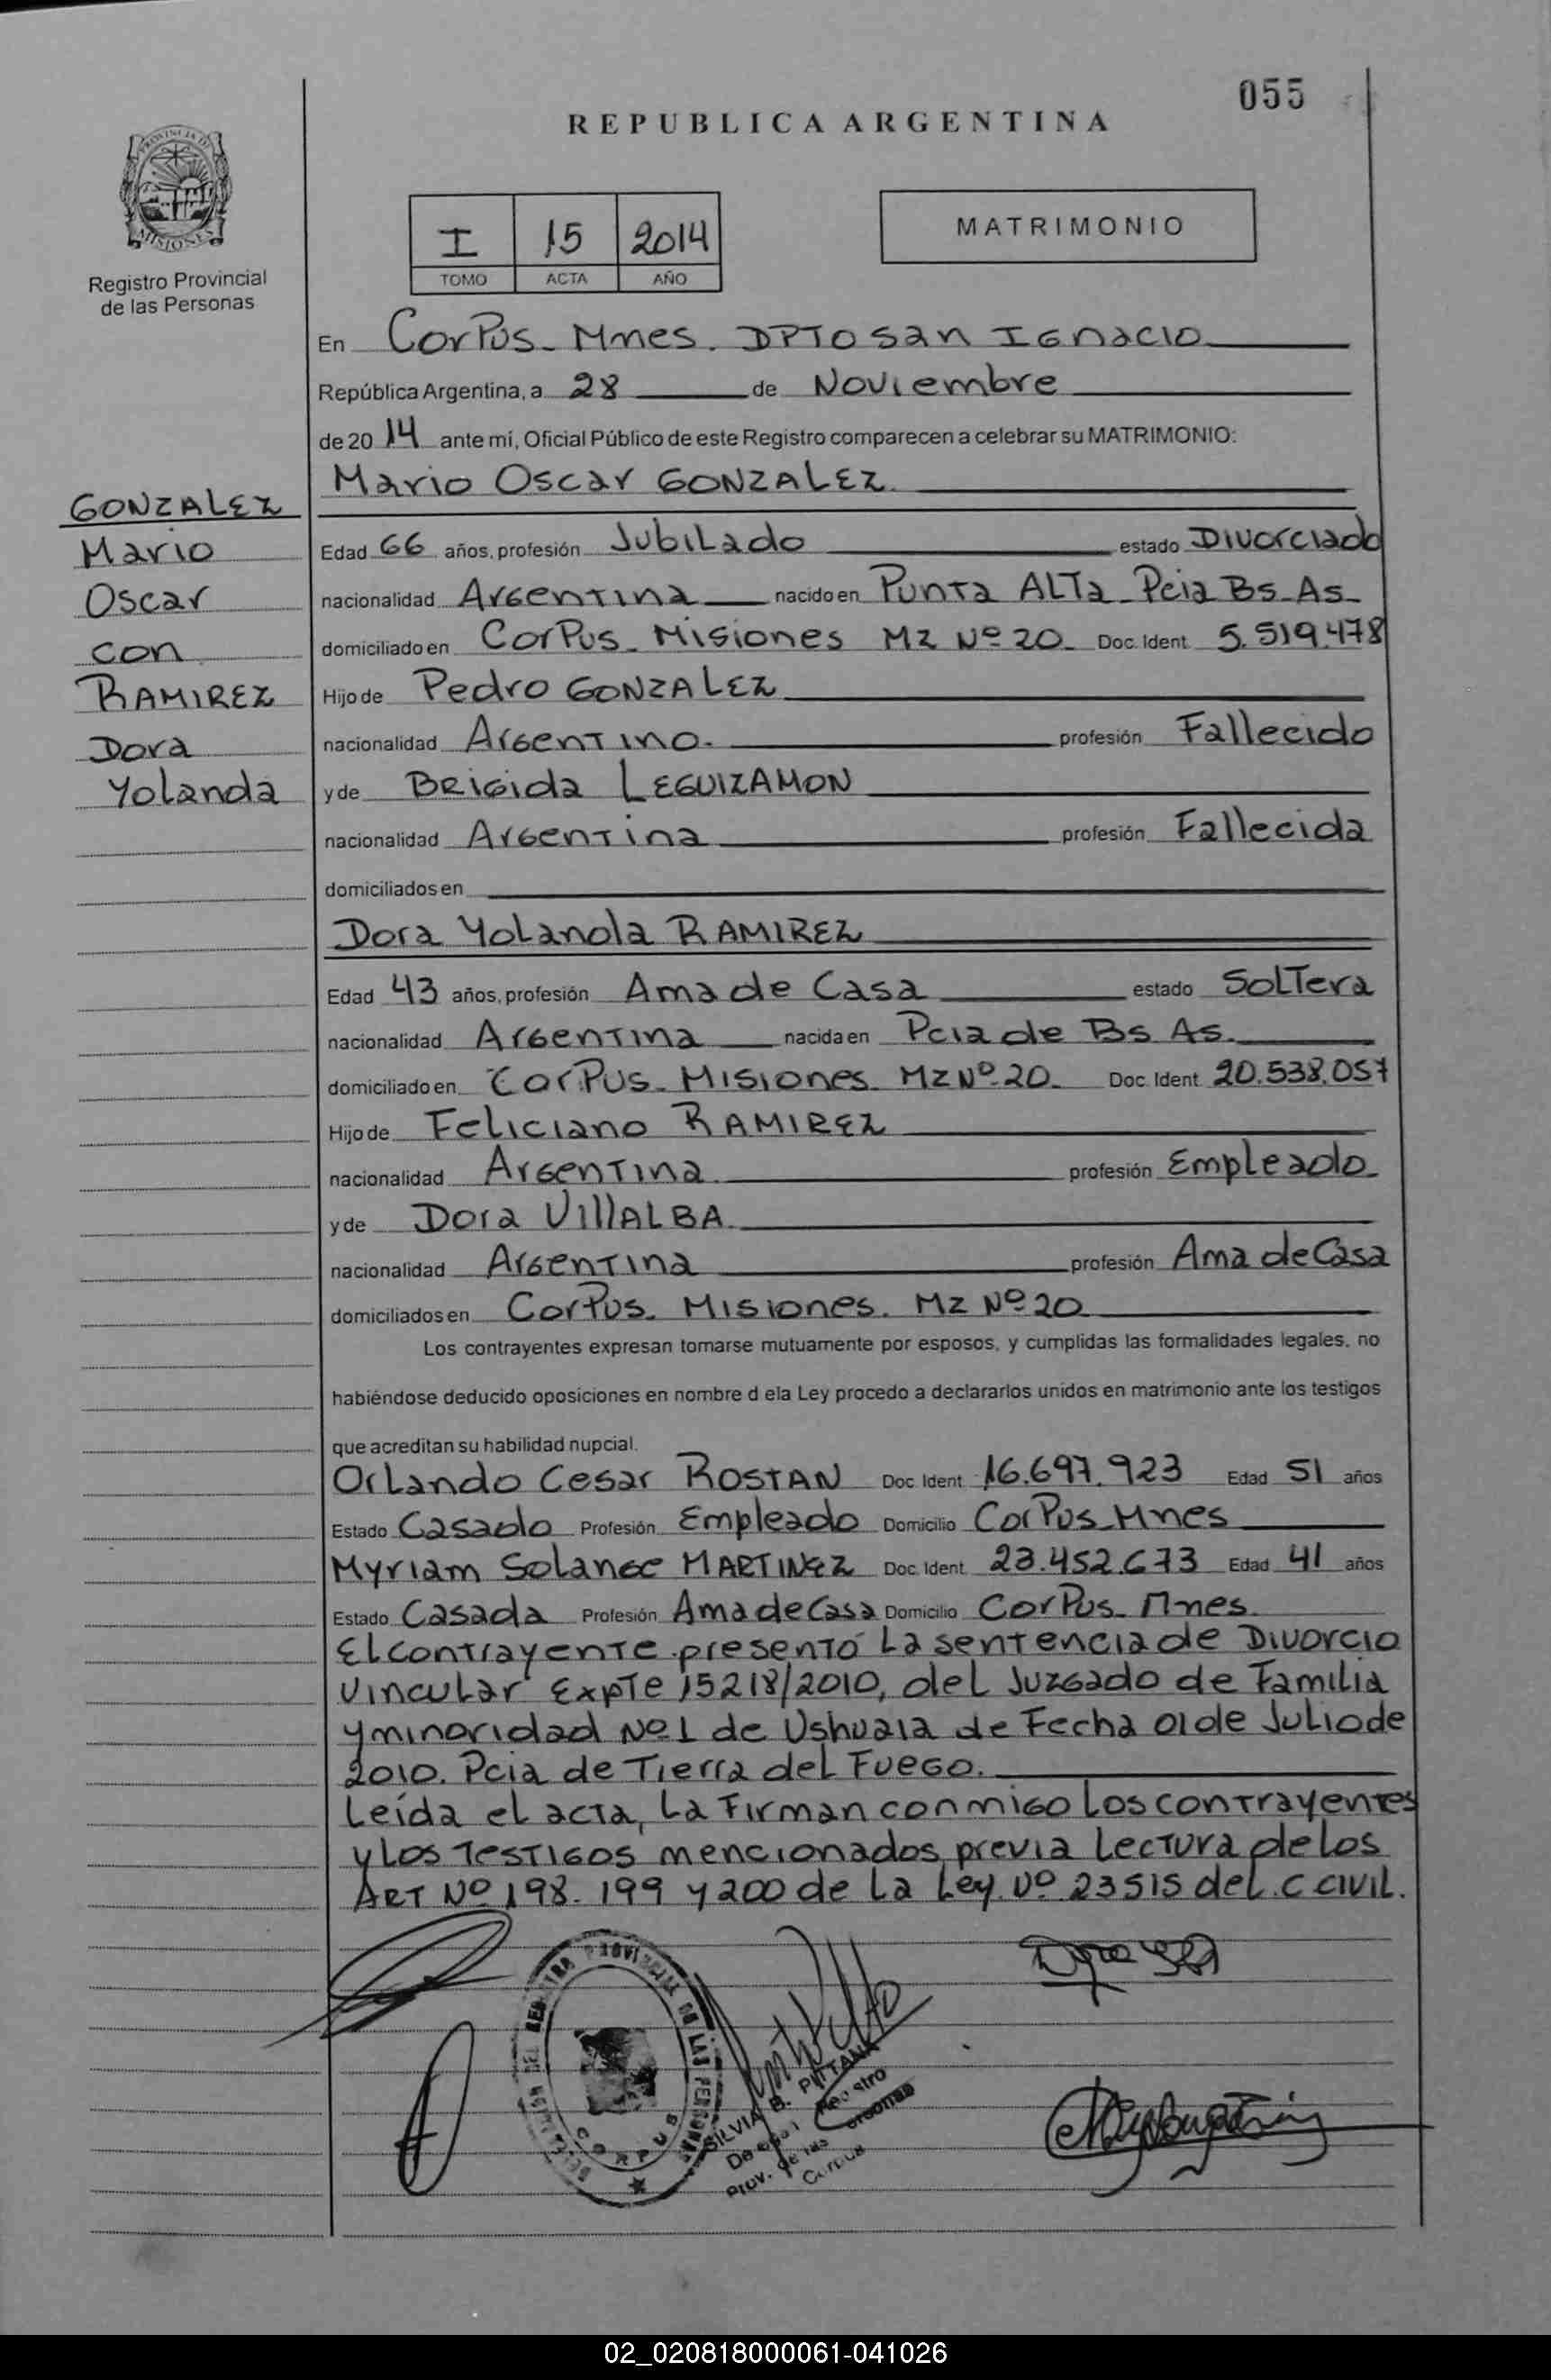 055
REPUBLICA ARGENTINA
PROVINCIA DE
MISIONES
Registro Provincial
de las Personas
I 15 2014
TOMO ACTA AÑO
MATRIMONIO
En Corpus - Mnes. DPTO San Ignacio
República Argentina, a 28 de Noviembre
de 20 14 ante mí, Oficial Público de este Registro comparecen a celebrar su MATRIMONIO:
GONZALEZ
Mario
Oscar
con
RAMIREZ
Dora
Yolanda
Mario Oscar GONZALEZ
Edad 66 años, profesión Jubilado estado Divorciado
nacionalidad Argentina nacido en Punta Alta - Pcia Bs - As -
domiciliado en Corpus - Misiones Mz Nº 20 - Doc. Ident. 5.519.478
Hijo de Pedro GONZALEZ
nacionalidad Argentino. profesión Fallecido
y de Brigida LEGUIZAMON
nacionalidad Argentina profesión Fallecida
domiciliados en
Dora Yolanda RAMIREZ
Edad 43 años, profesión Ama de Casa estado Soltera
nacionalidad Argentina nacida en Pcia de Bs As.
domiciliado en Corpus - Misiones Mz Nº 20 - Doc. Ident. 20.538.057
Hijo de Feliciano RAMIREZ
nacionalidad Argentina profesión Empleado
y de Dora VillALBA
nacionalidad Argentina profesión Ama de Casa
domiciliados en Corpus. Misiones. Mz Nº 20
Los contrayentes expresan tomarse mutuamente por esposos, y cumplidas las formalidades legales, no
habiéndose deducido oposiciones en nombre d ela Ley procedo a declararlos unidos en matrimonio ante los testigos
que acreditan su habilidad nupcial.
Orlando Cesar ROSTAN Doc. Ident. 16.697.923 Edad 51 años
Estado Casado Profesión Empleado Domicilio Corpus - Mnes
Myriam Solange MARTINEZ Doc. Ident. 23.452.673 Edad 41 años
Estado Casada Profesión Ama de Casa Domicilio Corpus - Mnes.
El contrayente presentó la sentencia de Divorcio
Vincular Expte 15218/2010, del Juzgado de Familia
y minoridad Nº 1 de Ushuaia de Fecha 01 de Julio de
2010. Pcia de Tierra del Fuego.
Leída el acta, la firman conmigo los contrayentes
y los testigos mencionados, previa lectura de los
ART Nº 198. 199 y 200 de la Ley. Nº 23515 del. C civil.
PROVINCIAL DE LAS PERSONAS
CORPUS
SILVIA B. PITTANA
Registro
Prov. de las Personas
Corpus
02_020818000061-041026